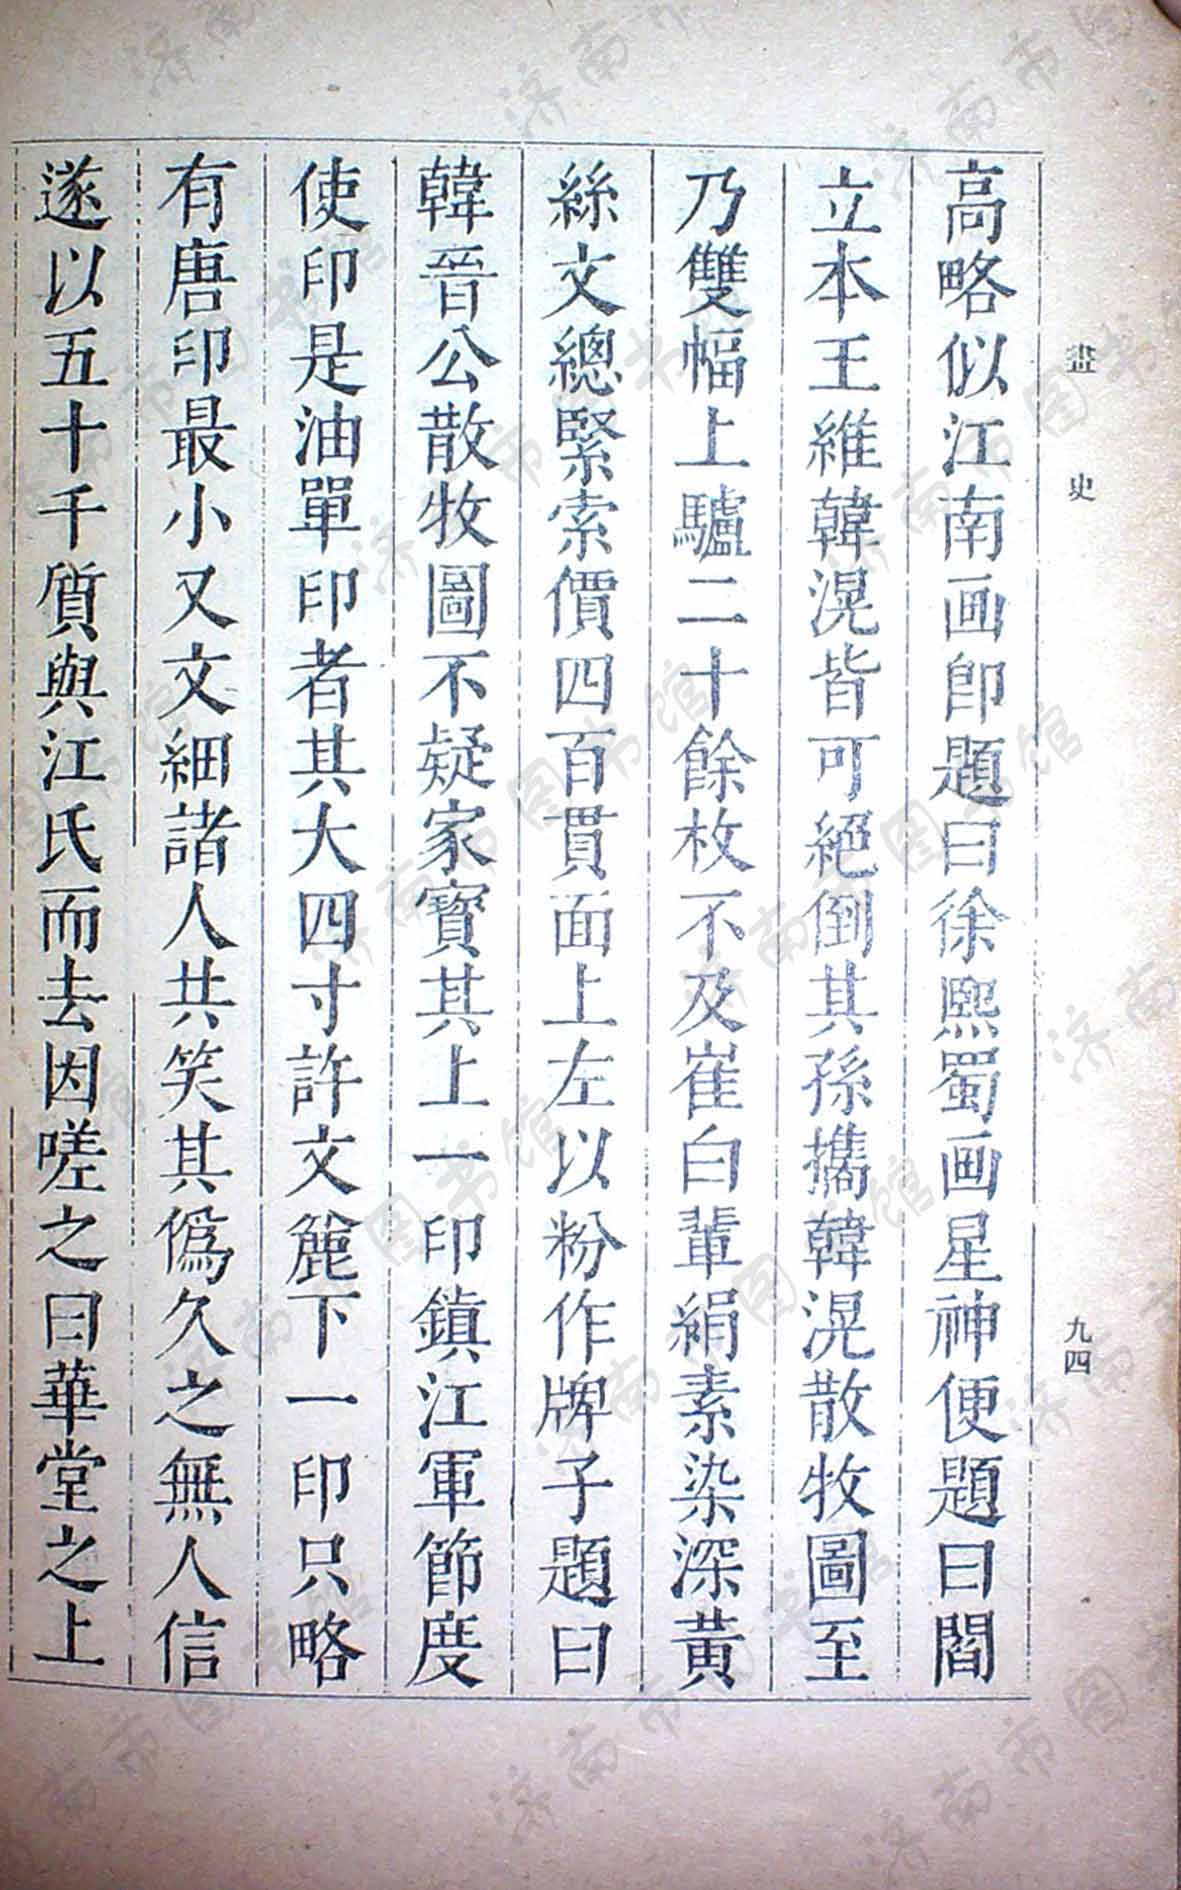 畫史
九四
高略似江南画卽題曰徐熙蜀画星神便題曰閻
立本王維韓滉皆可絕倒其孫攜韓滉散牧圖至
乃雙幅上驢二十餘枚不及崔白輩絹素染深黃
絲文總緊索價四百貫面上左以粉作牌子題曰
韓晉公散牧圖不疑家寶其上一印鎮江軍節度
使印是油單印者其大四寸許文麄下一印只略
有唐印最小又文細諸人共笑其偽久之無人信
遂以五十千質與江氏而去因嗟之曰華堂之上
济南市图书馆